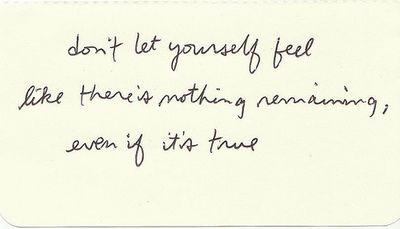 don't let yourself feel
like there's nothing remaining,
even if it's true